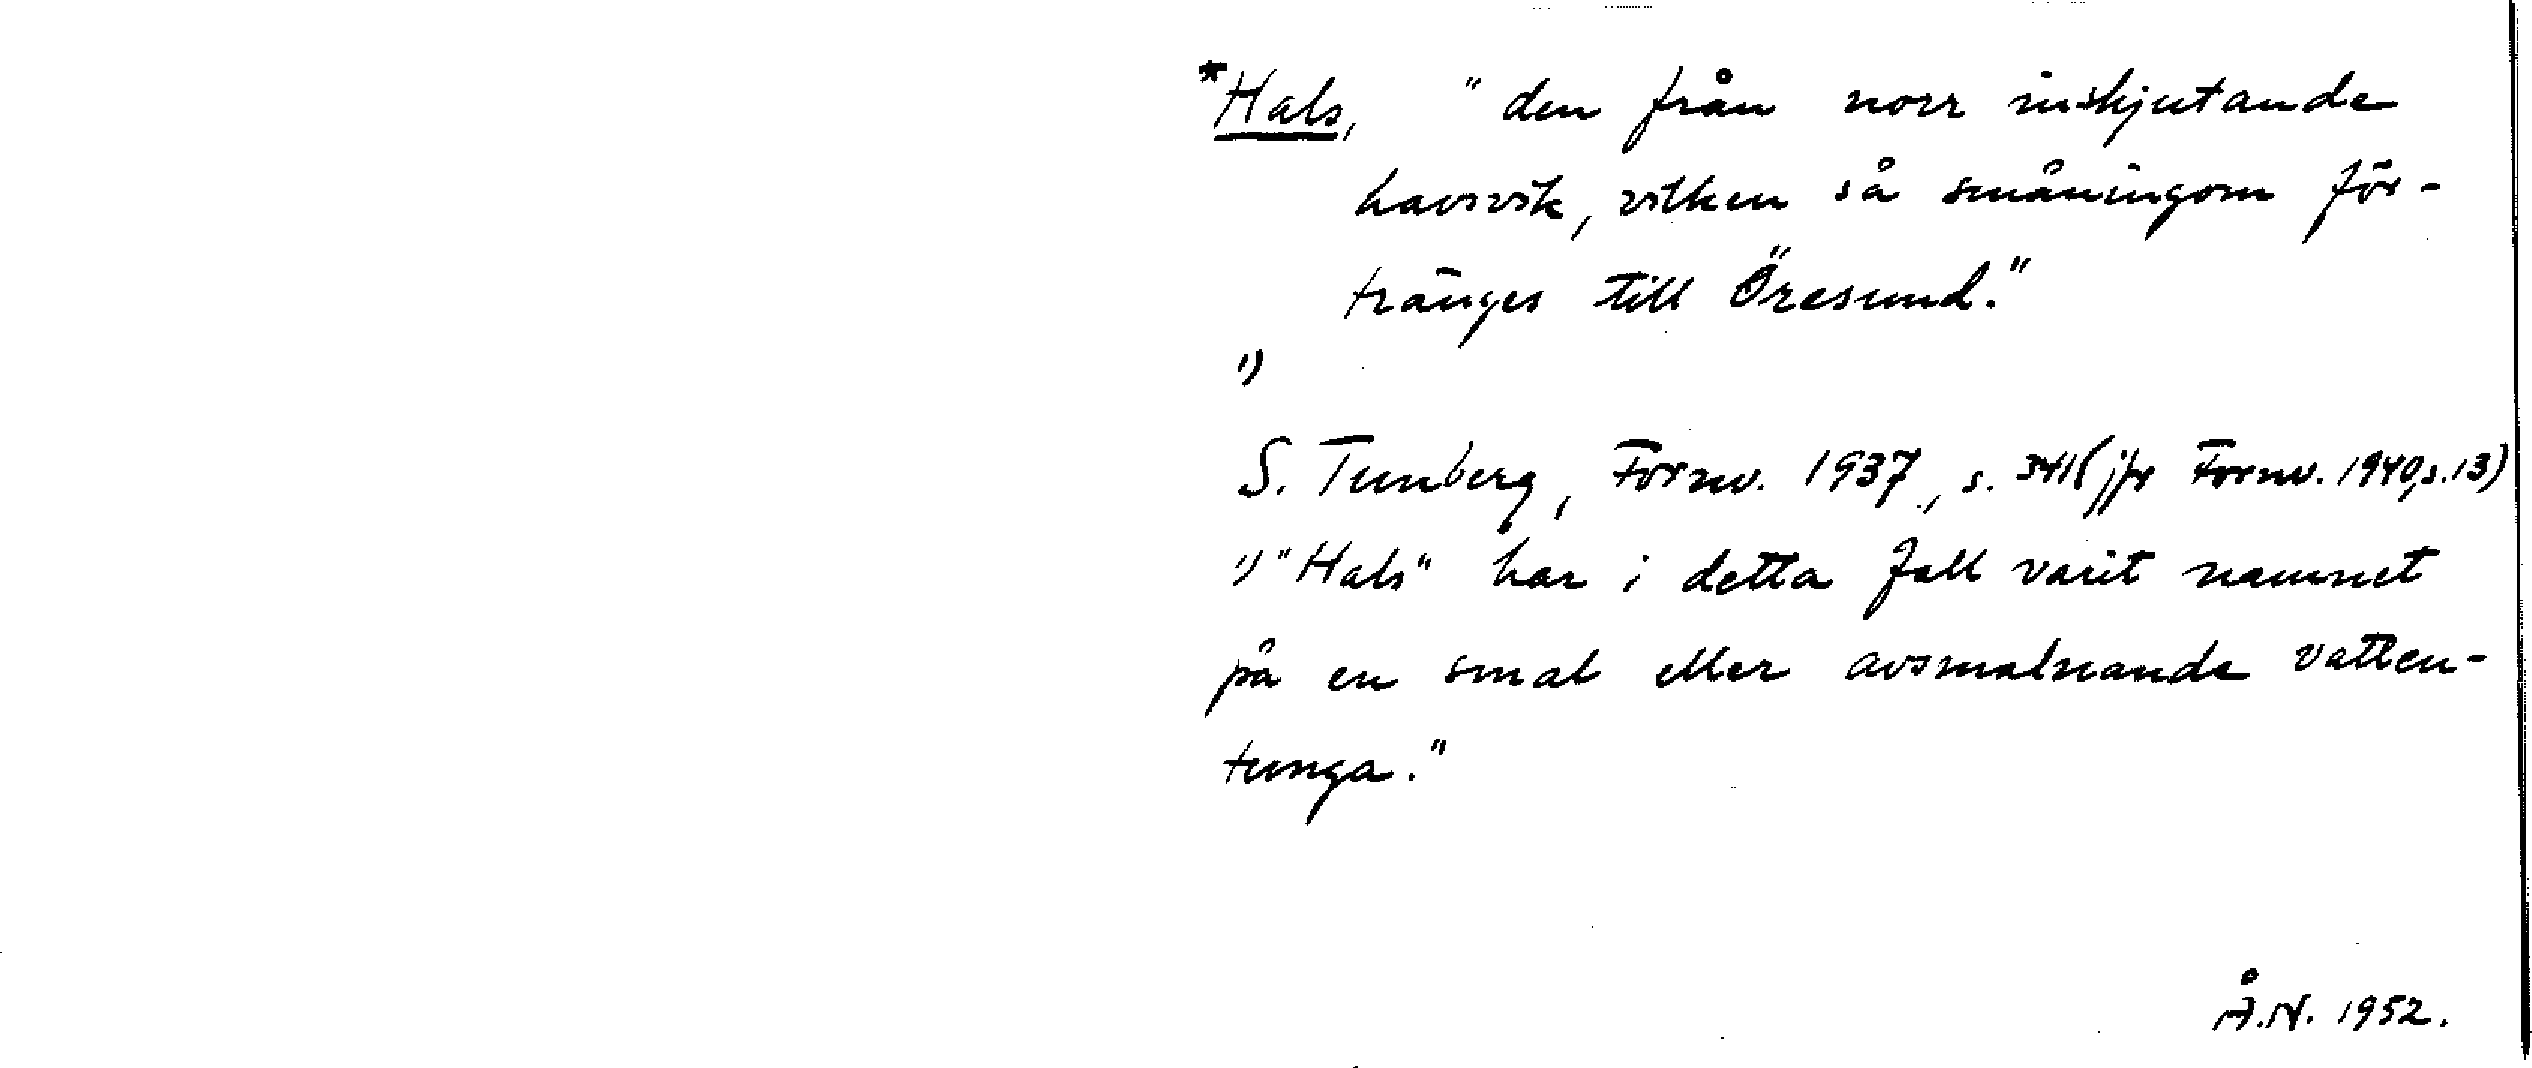 *Hals, "den från norr inskjutande
havsvik, vilken så småningom för-
tränges till Öresund."
1)
S. Tunberg, Fornv. 1937, s. 341 (jfr Fornv. 1940, s. 13)
1) "Hals" har i detta fall varit namnet
på en smal eller avsmalnande vatten-
tunga."
Å.N. 1952.